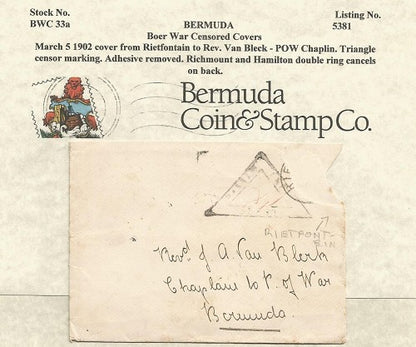 Stock No.
BWC 33a
BERMUDA
Boer War Censored Covers
Listing No.
5381
March 5 1902 cover from Rietfontain to Rev. Van Bleck - POW Chaplin. Triangle
censor marking. Adhesive removed. Richmount and Hamilton double ring cancels
on back.
Bermuda
Coin & Stamp Co.
RIE
RIETFONT-
EIN
Revd J. A. Van Blerk
Chaplain to P. of War
Bermuda.